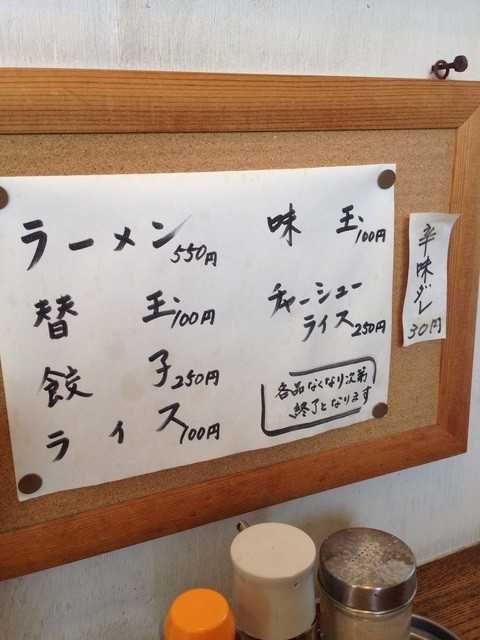 ラーメン 550円
替玉 100円
餃子 250円
ライス 100円
味玉 100円
チャーシュー
ライス 250円
各品なくなり次第
終了となります
辛味ダレ
30円